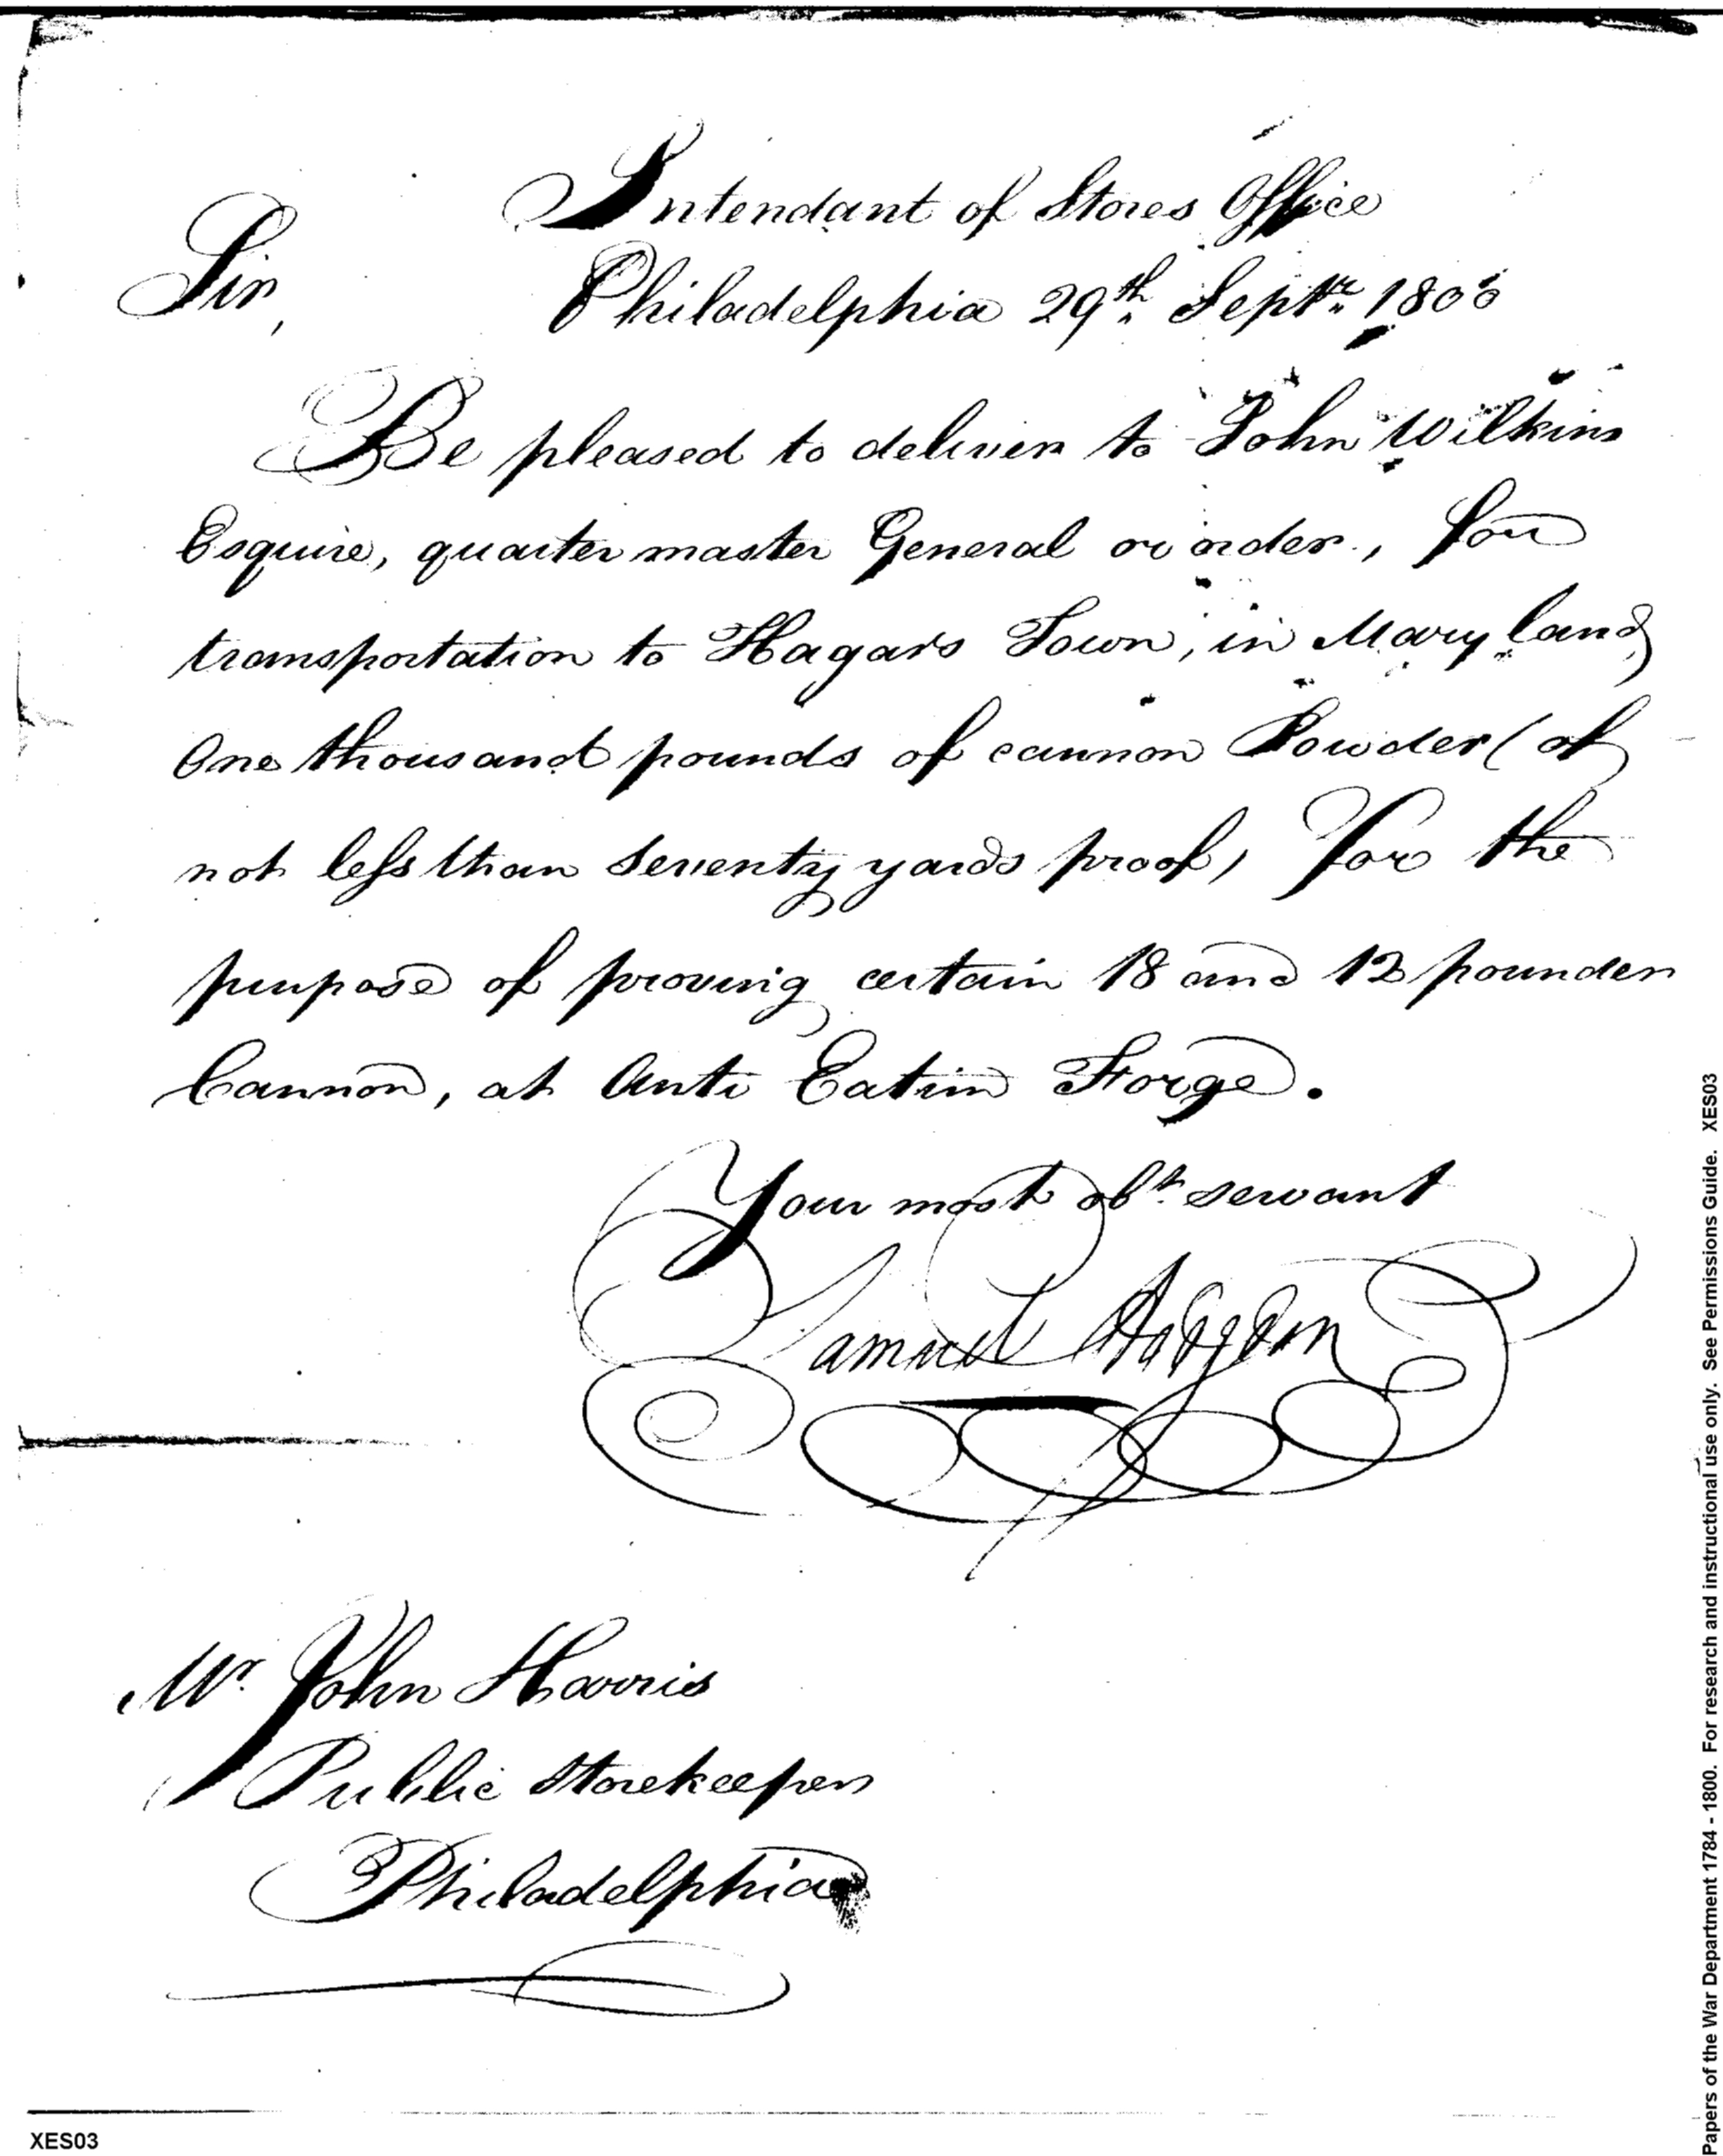 Intendant of Stores Office
Sir,
Philadelphia 29th Septr 1800
Be pleased to deliver to John Wilkins
Esquire, quarter master General or order, for
transportation to Hagars Town, in Mary land,
One thousand pounds of cannon Powder (of
not less than seventy yards proof) for the
purpose of proving certain 18 and 12 pounder
Cannon, at Anti Eatim Forge.
Your most obt servant
Samuel Hodgdon
Mr John Harris
Public Storekeeper
Philadelphia
XES03
Papers of the War Department 1784 - 1800. For research and instructional use only. See Permissions Guide. XES03